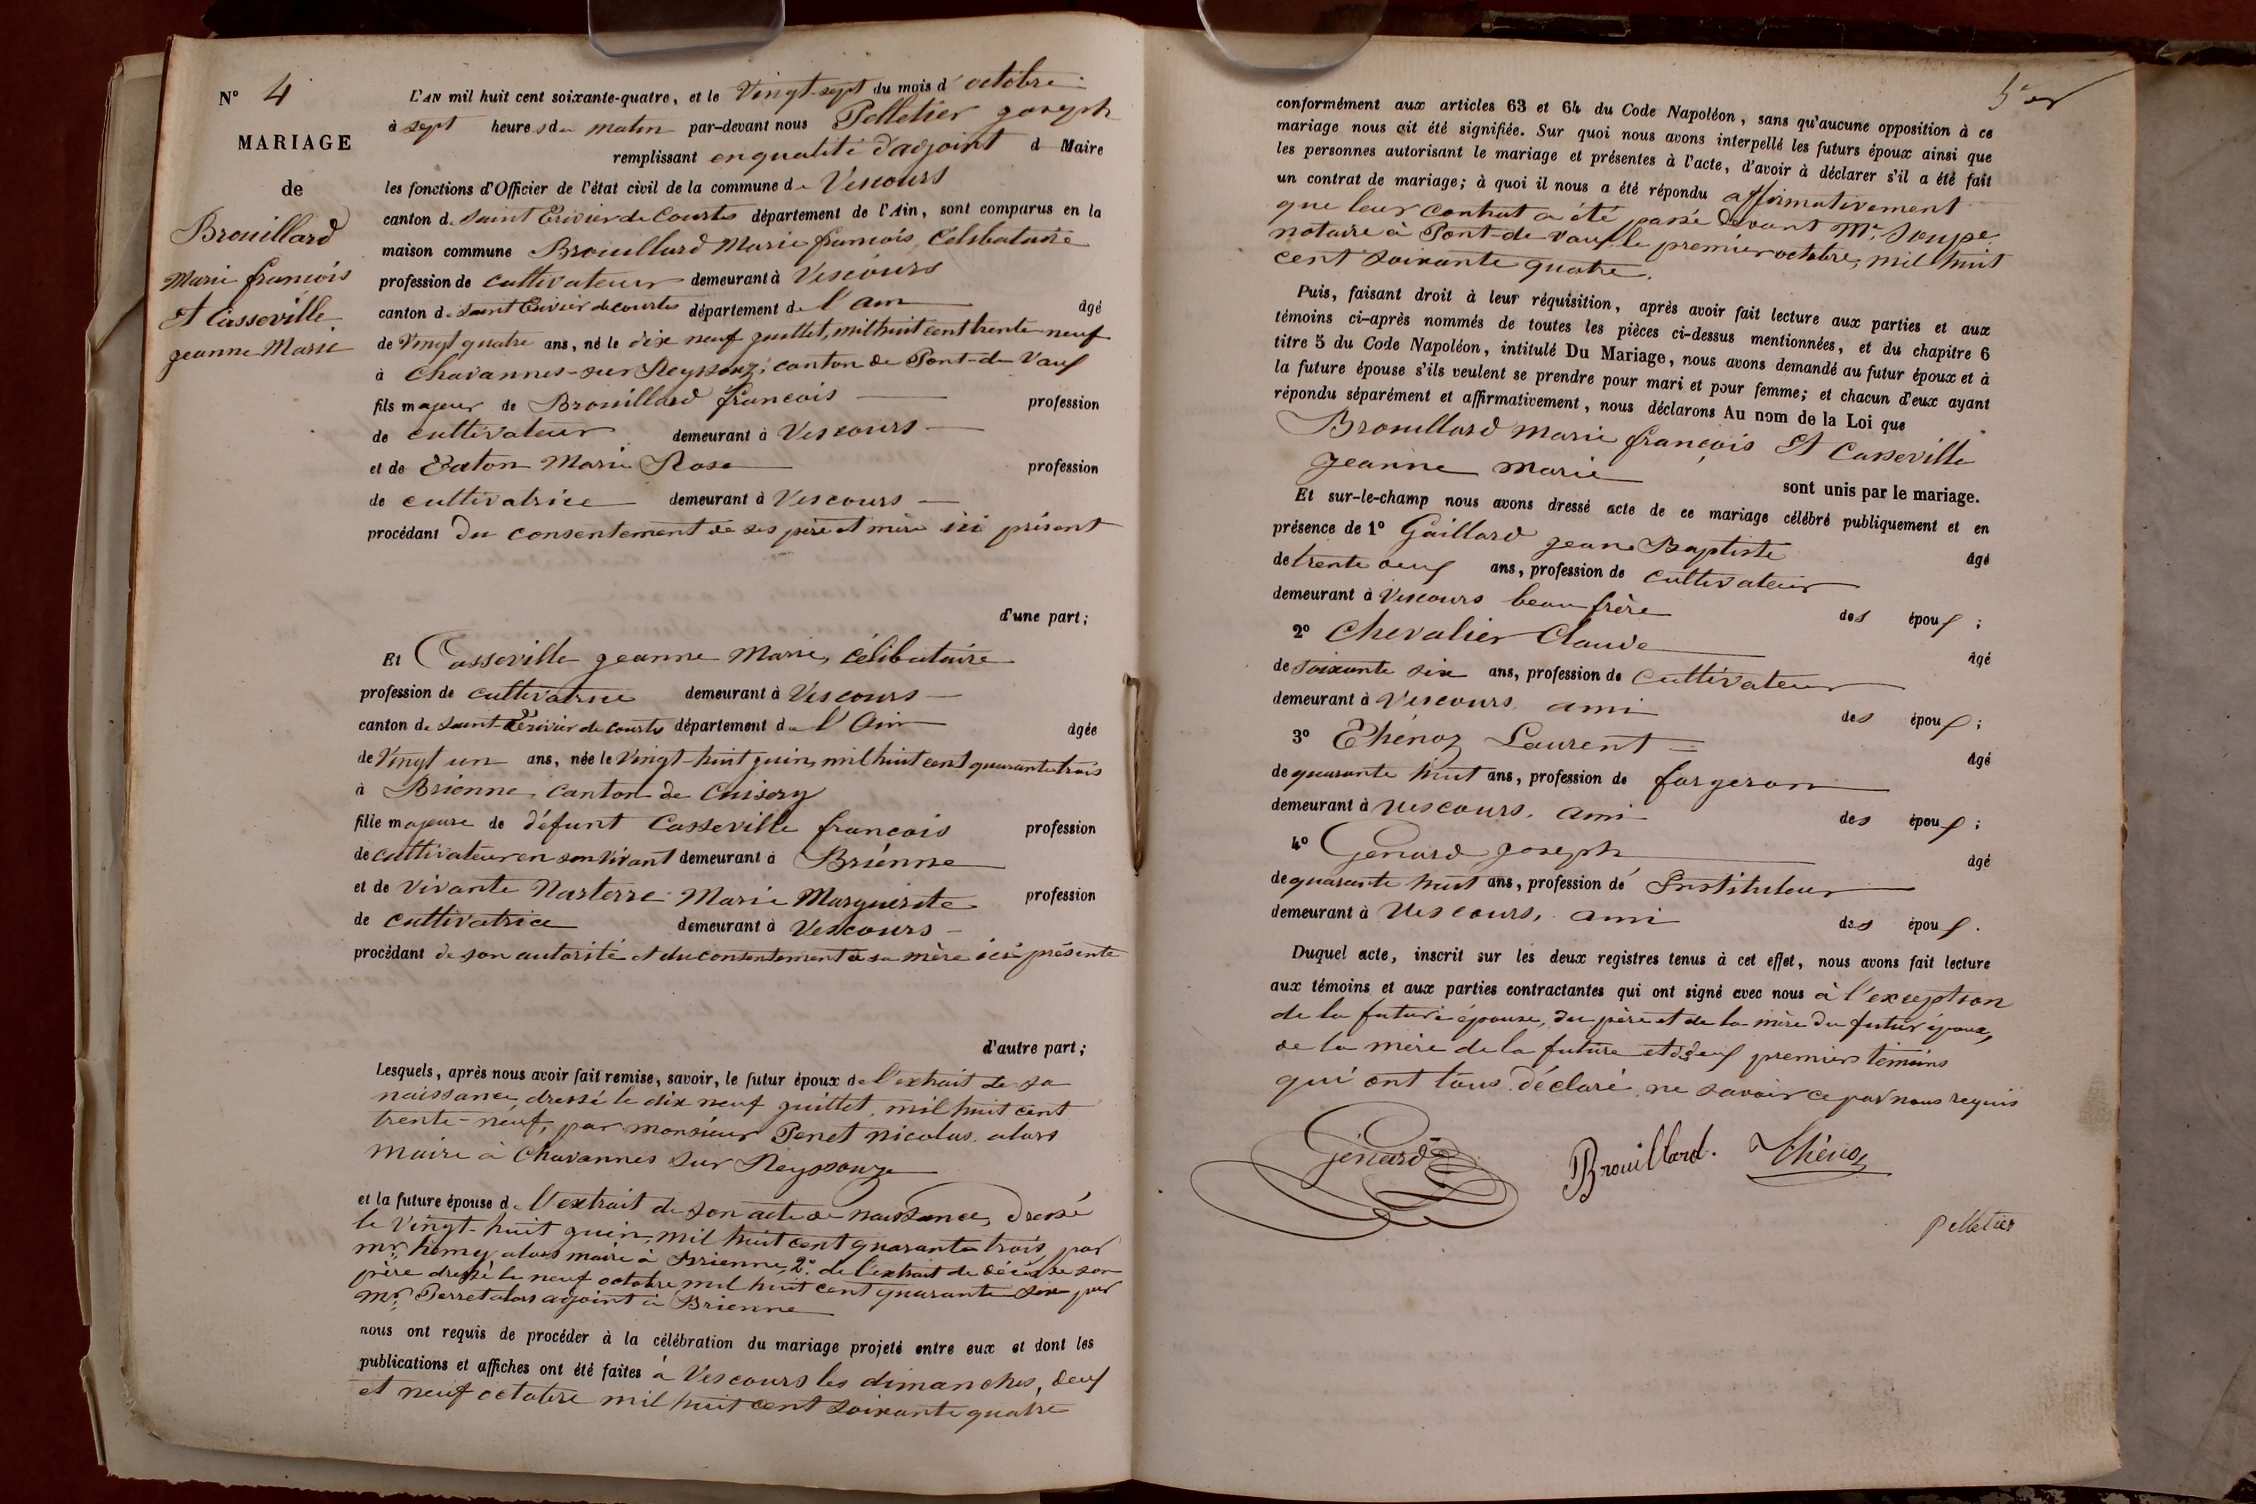 N° 4
MARIAGE
de
Brouillard
Marie françois
et Casseville
jeanne Marie
L'AN mil huit cent soixante-quatre, et le Vingt-sept du mois d'octobre
à sept heures du matin par-devant nous Pelletier joseph
remplissant en qualité d'adjoint d Maire
les fonctions d'Officier de l'état civil de la commune de Vescours
canton de Saint Trivier de Courtes département de l'Ain, sont comparus en la
maison commune Brouillard Marie françois, Célibataire
profession de cultivateur demeurant à Vescours
canton de Saint Trivier de courtes département de l'ain âgé
de Vingt quatre ans, né le dix neuf juillet, mil huit cent trente-neuf
à Chavannes-sur Reyssouze, canton de Pont-de Vaux
fils majeur de Brouillard françois profession
de cultivateur demeurant à Vescours
et de Marie Rose profession
de cultivatrice demeurant à Vescours
procédant du consentement de ses père et mère ici présent
d'une part;
Et Casseville jeanne Marie, célibataire
profession de cultivatrice demeurant à Vescours
canton de Saint-Trivier de courtes département de l'Ain âgée
de Vingt un ans, née le Vingt-huit juin, mil huit cent quarante trois
à Brienne, canton de Cuisery
fille majeure de défunt Casseville françois profession
de cultivateur en son vivant demeurant à Brienne
et de vivante Nasterre Marie Marguerite profession
de cultivatrice demeurant à Vescours
procédant de son autorité et du consentement de sa mère ici présente
d'autre part;
Lesquels, après nous avoir fait remise, savoir, le futur époux de l'extrait de sa
naissance dressé le dix neuf juillet, mil huit cent
trente-neuf, par monsieur Penet nicolas, alors
maire à Chavannes sur Reyssouze
et la future épouse de l'extrait de son acte de naissance, dressé
le vingt-huit juin, mil huit cent quarante trois, par
mr. alors maire à Brienne, 2° de l'extrait de décès de son
père dressé le neuf octobre mil huit cent quarante six par
mr. Perret alors adjoint à Brienne
nous ont requis de procéder à la célébration du mariage projeté entre eux et dont les
publications et affiches ont été faites à Vescours les dimanches, deux
et neuf octobre mil huit cent soixante quatre
conformément aux articles 63 et 64 du Code Napoléon, sans qu'aucune opposition à ce
mariage nous ait été signifiée. Sur quoi nous avons interpellé les futurs époux ainsi que
les personnes autorisant le mariage et présentes à l'acte, d'avoir à déclarer s'il a été fait
un contrat de mariage; à quoi il nous a été répondu affirmativement
que leur contrat a été passé devant Me. Soupe
notaire à Pont-de Vaux le premier octobre, mil huit
cent soixante quatre.
Puis, faisant droit à leur réquisition, après avoir fait lecture aux parties et aux
témoins ci-après nommés de toutes les pièces ci-dessus mentionnées, et du chapitre 6
titre 5 du Code Napoléon, intitulé Du Mariage, nous avons demandé au futur époux et à
la future épouse s'ils veulent se prendre pour mari et pour femme; et chacun d'eux ayant
répondu séparément et affirmativement, nous déclarons Au nom de la Loi que
Brouillard Marie françois Et Casseville
jeanne marie sont unis par le mariage.
Et sur-le-champ nous avons dressé acte de ce mariage célébré publiquement et en
présence de 1° Gaillard jean Baptiste âgé
de trente ans, profession de cultivateur
demeurant à Vescours beau frère des époux;
2° Chevalier Claude âgé
de soixante six ans, profession de cultivateur
demeurant à Vescours ami des époux;
3° Thénoz Laurent âgé
de quarante huit ans, profession de forgeron
demeurant à Vescours, ami des époux;
4° Génard joseph âgé
de quarante huit ans, profession de Instituteur
demeurant à Vescours, ami des époux.
Duquel acte, inscrit sur les deux registres tenus à cet effet, nous avons fait lecture
aux témoins et aux parties contractantes qui ont signé avec nous à l'exception
de la future épouse, du père et de la mère du futur époux,
de la mère de la future et des deux premiers témoins
qui ont tous déclaré ne savoir ce par nous requis
Génard Brouillard. Thénoz
Pelletier